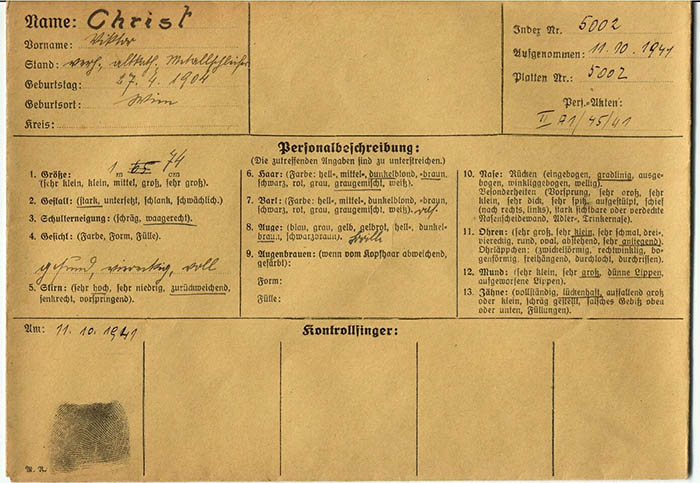 Name: Christ
Vorname: Viktor
Stand: verh, altkath, Metallschleifer
Geburtstag: 27. 4. 1904
Geburtsort: Wien
Kreis:
Index Nr. 5002
Aufgenommen: 11. 10. 1941
Platten Nr.: 5002
Pers.-Akten:
II A1/45/41
Personalbeschreibung:
(Die zutreffenden Angaben sind zu unterstreichen.)
1. Größe: 1 m 65 74 cm
(sehr klein, klein, mittel, groß, sehr groß).
2. Gestalt: (stark, untersetzt, schlank, schwächlich.)
3. Schulterneigung: (schräg, waagerecht).
4. Gesicht: (Farbe, Form, Fülle).
gesund, viereckig, voll
5. Stirn: (sehr hoch, sehr niedrig, zurückweichend,
senkrecht, vorspringend).
6. Haar: (Farbe: hell-, mittel-, dunkelblond, -braun,
schwarz, rot, grau, graugemischt, weiß).
7. Bart: (Farbe: hell-, mittel-, dunkelblond, -braun,
schwarz, rot, grau, graugemischt, weiß).
8. Auge: (blau, grau, gelb, gelbrot, hell-, dunkel-
braun, schwarzbraun).
9. Augenbrauen: (wenn vom Kopfhaar abweichend,
gefärbt):
Form:
Fülle:
10. Nase: Rücken (eingebogen, gradlinig, ausge-
bogen, winkliggebogen, wellig).
Besonderheiten (Vorsprung, sehr groß, sehr
klein, sehr dick, sehr spitz, aufgestülpt, schief
(nach rechts, links), stark sichtbare oder verdeckte
Nasenscheidewand, Adler-, Trinkernase).
11. Ohren: (sehr groß, sehr klein, sehr schmal, drei-,
viereckig, rund, oval, abstehend, sehr anliegend).
Ohrläppchen: (zwickelförmig, rechtwinklig, bo-
genförmig, freihängend, durchlocht, durchrissen).
12. Mund: (sehr klein, sehr groß, dünne Lippen,
aufgeworfene Lippen).
13. Zähne: (vollständig, lückenhaft, auffallend groß
oder klein, schräg gestellt, falsches Gebiß oben
oder unten, Füllungen).
Am: 11. 10. 1941
Kontrollfinger:
M. N.